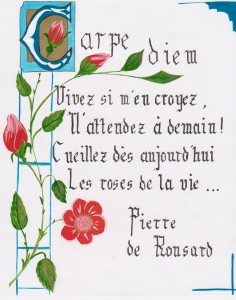 Carpe diem
Vivez si m'en croyez,
N'attendez à demain !
Cueillez dès aujourd'hui
Les roses de la vie ...
Pierre
de Ronsard